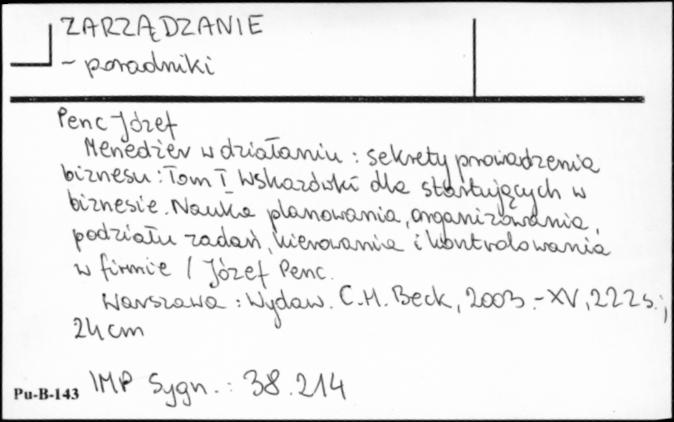 ZARZĄDZANIE
- poradniki
Penc Józef
Menedżer w działaniu : sekrety prowadzenia
biznesu : Tom I Wskazówki dla startujących w
biznesie. Nauka planowania, organizowania,
podziału zadań, kierowania i kontrolowania
w firmie / Józef Penc.
Warszawa : Wydaw. C.H. Beck, 2003.-XV, 222s.;
24cm
IMP Sygn.: 38.214
Pu-B-143